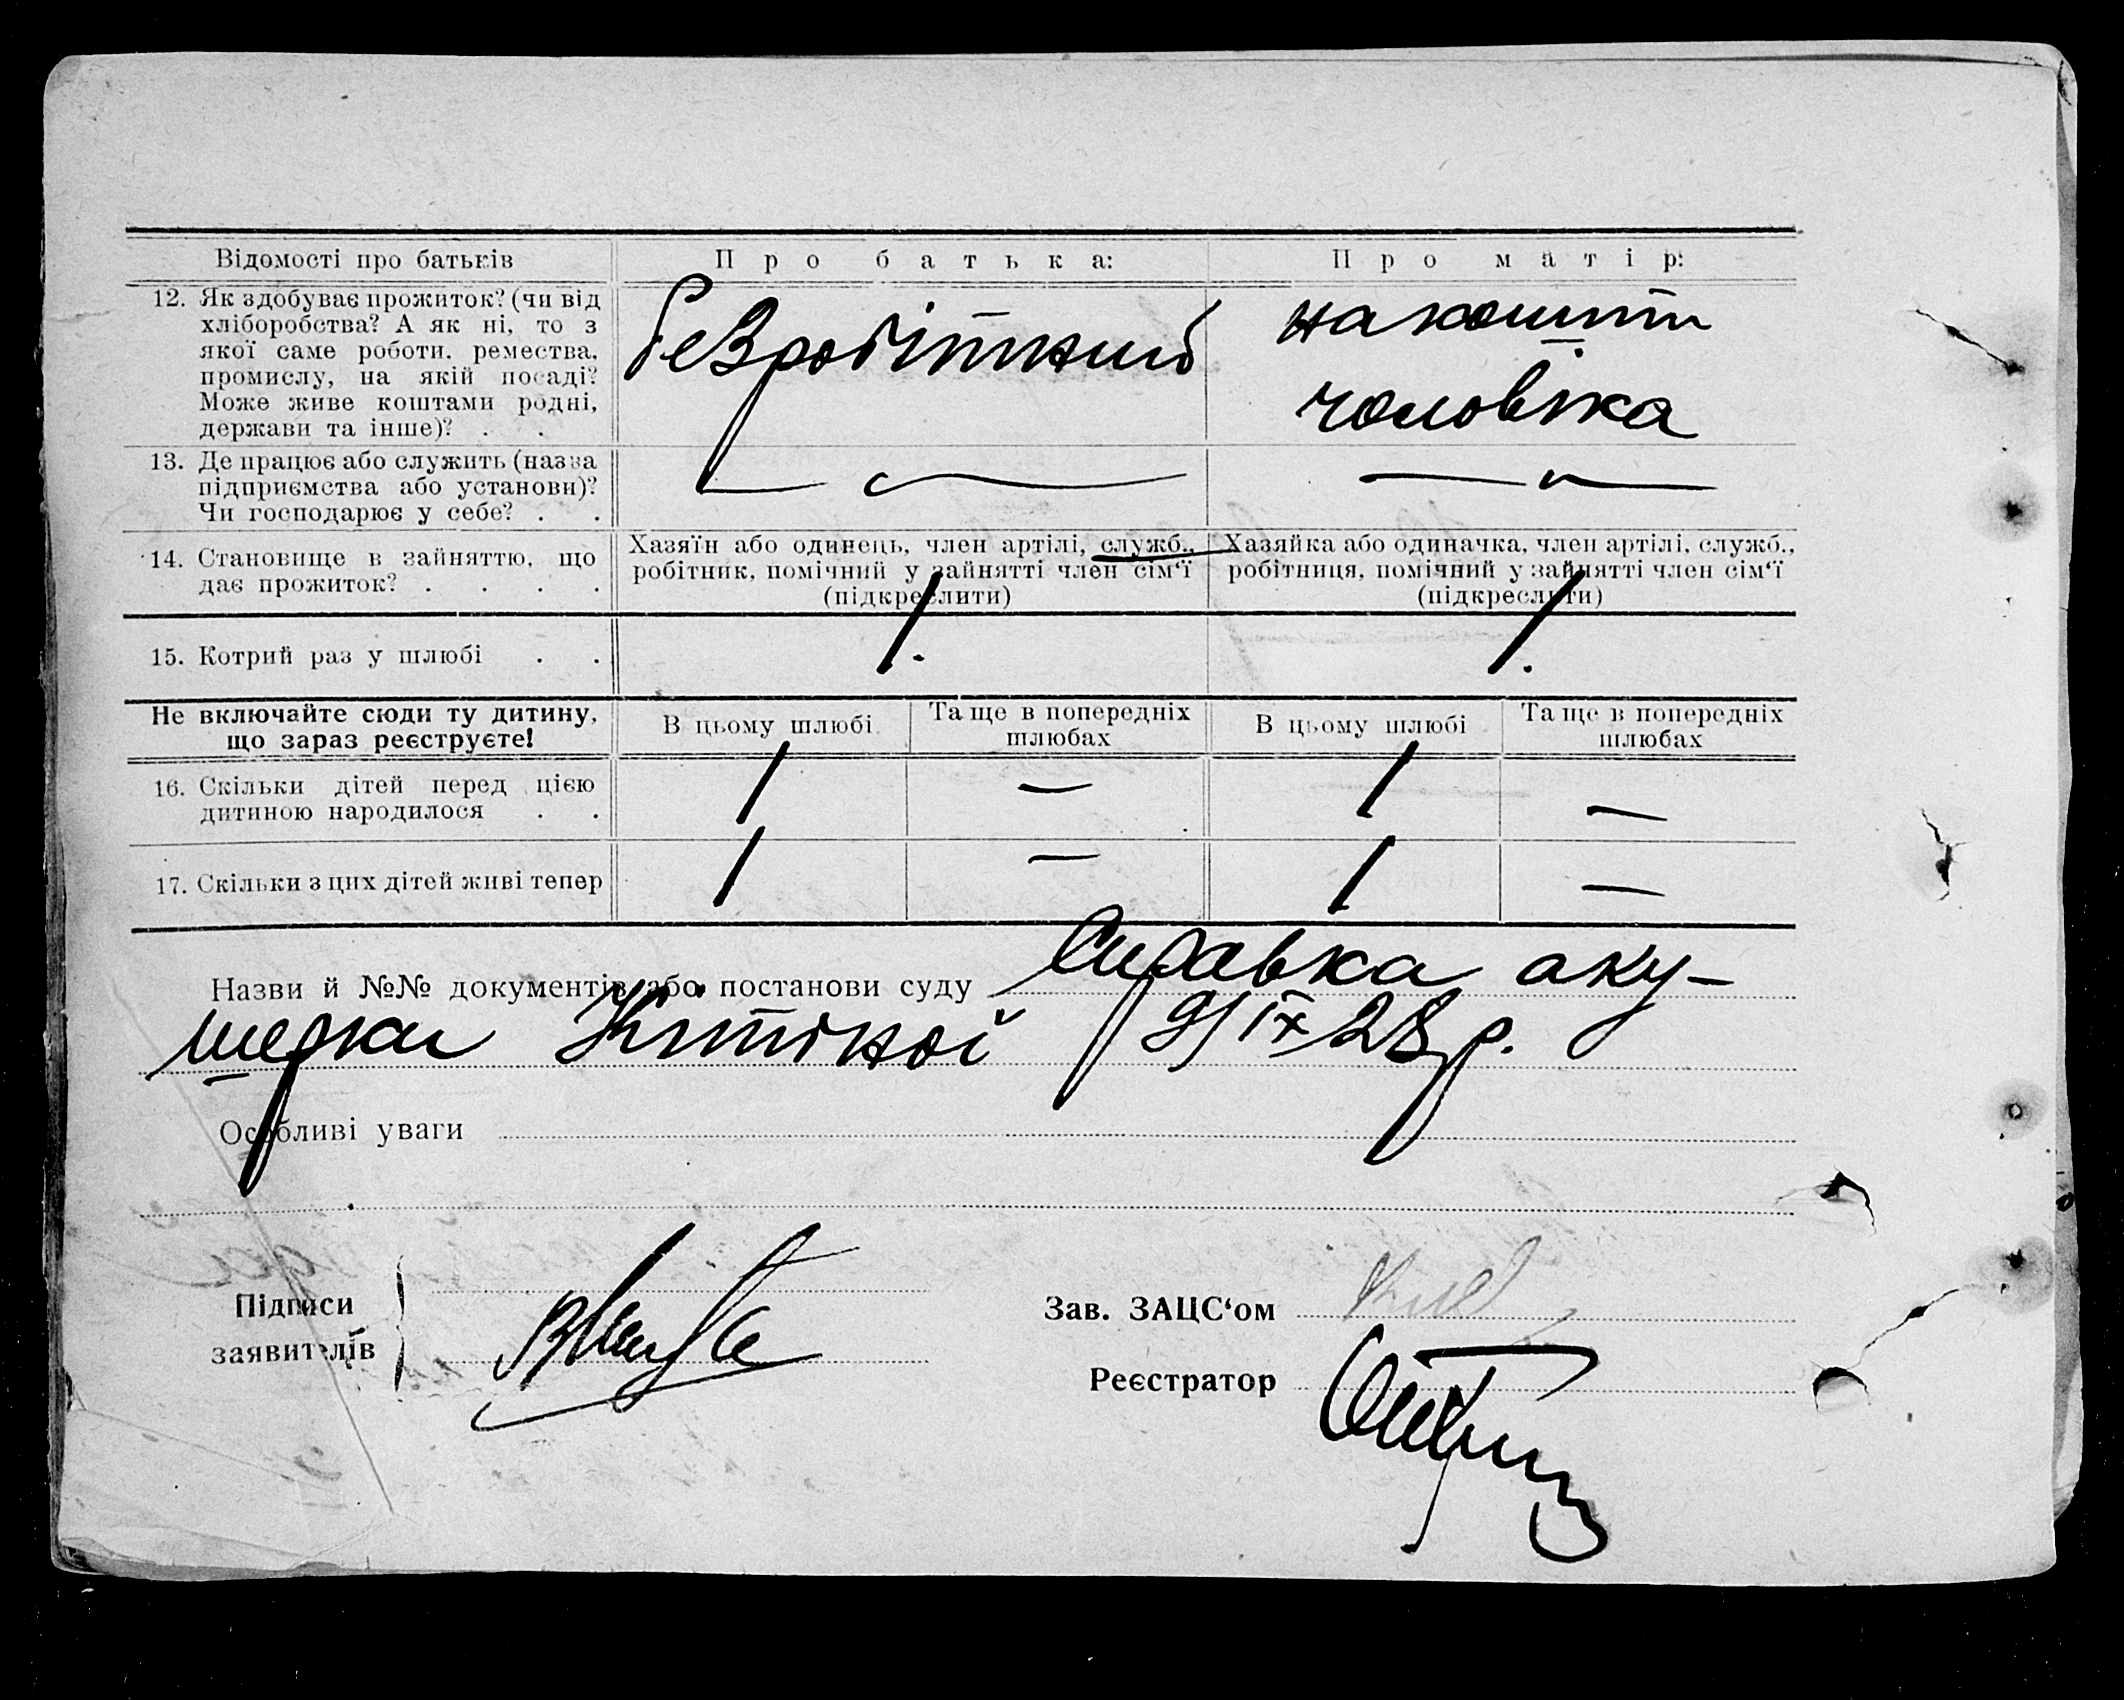 Відомості про батьків
Про батька:
Про матір:
12. Як здобуває прожиток? (чи від
хліборобства? А як ні, то з
якої саме роботи, ремества,
промислу, на якій посаді?
Може живе коштами родні,
держави та інше)? . .
безробітний
на кошти
чоловіка
13. Де працює або служить (назва
підприємства або установи)?
Чи господарює у себе? . .
14. Становище в зайняттю, що
дає прожиток? . . . .
Хазяїн або одинець, член артілі, служб.,
робітник, помічний у зайнятті член сім‘ї
(підкреслити)
Хазяйка або одиначка, член артілі, служб.,
робітниця, помічний у зайнятті член сім‘ї
(підкреслити)
15. Котрий раз у шлюбі . .
1.
1.
Не включайте сюди ту дитину,
що зараз реєструєте!
В цьому шлюбі
Та ще в попередніх
шлюбах
В цьому шлюбі
Та ще в попередніх
шлюбах
16. Скільки дітей перед цією
дитиною народилося . .
1 — 1 —
17. Скільки з цих дітей живі тепер
1 — 1 —
Назви й №№ документів або постанови суду Справка аку-
шерки 9/IX 28 р.
Особливі уваги
Підписи
заявителів
Зав. ЗАЦС‘ом
Реєстратор